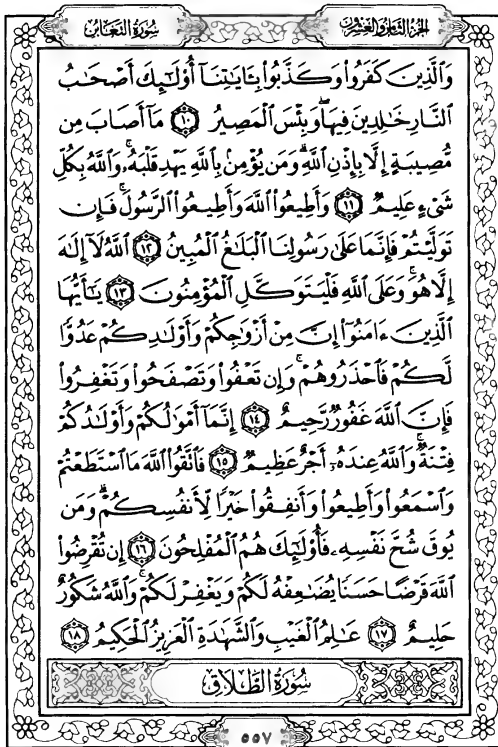 الجزء الثامن والعشرون
سورة التغابن
وَالَّذِينَ كَفَرُوا۟ وَكَذَّبُوا۟ بِـَٔايَـٰتِنَآ أُو۟لَـٰٓئِكَ أَصْحَـٰبُ
النَّارِ خَـٰلِدِينَ فِيهَا ۖ وَبِئْسَ الْمَصِيرُ ١٠ مَآ أَصَابَ مِن
مُّصِيبَةٍ إِلَّا بِإِذْنِ اللَّهِ ۗ وَمَن يُؤْمِنۢ بِاللَّهِ يَهْدِ قَلْبَهُۥ ۚ وَاللَّهُ بِكُلِّ
شَىْءٍ عَلِيمٌ ١١ وَأَطِيعُوا۟ اللَّهَ وَأَطِيعُوا۟ الرَّسُولَ ۚ فَإِن
تَوَلَّيْتُمْ فَإِنَّمَا عَلَىٰ رَسُولِنَا الْبَلَـٰغُ الْمُبِينُ ١٢ اللَّهُ لَآ إِلَـٰهَ
إِلَّا هُوَ ۚ وَعَلَى اللَّهِ فَلْيَتَوَكَّلِ الْمُؤْمِنُونَ ١٣ يَـٰٓأَيُّهَا
الَّذِينَ ءَامَنُوٓا۟ إِنَّ مِنْ أَزْوَٰجِكُمْ وَأَوْلَـٰدِكُمْ عَدُوًّا
لَّكُمْ فَاحْذَرُوهُمْ ۚ وَإِن تَعْفُوا۟ وَتَصْفَحُوا۟ وَتَغْفِرُوا۟
فَإِنَّ اللَّهَ غَفُورٌ رَّحِيمٌ ١٤ إِنَّمَآ أَمْوَٰلُكُمْ وَأَوْلَـٰدُكُمْ
فِتْنَةٌ ۚ وَاللَّهُ عِندَهُۥٓ أَجْرٌ عَظِيمٌ ١٥ فَاتَّقُوا۟ اللَّهَ مَا اسْتَطَعْتُمْ
وَاسْمَعُوا۟ وَأَطِيعُوا۟ وَأَنفِقُوا۟ خَيْرًا لِّأَنفُسِكُمْ ۗ وَمَن
يُوقَ شُحَّ نَفْسِهِۦ فَأُو۟لَـٰٓئِكَ هُمُ الْمُفْلِحُونَ ١٦ إِن تُقْرِضُوا۟
اللَّهَ قَرْضًا حَسَنًا يُضَـٰعِفْهُ لَكُمْ وَيَغْفِرْ لَكُمْ ۚ وَاللَّهُ شَكُورٌ
حَلِيمٌ ١٧ عَـٰلِمُ الْغَيْبِ وَالشَّهَـٰدَةِ الْعَزِيزُ الْحَكِيمُ ١٨
سورة الطلاق
٥٥٧